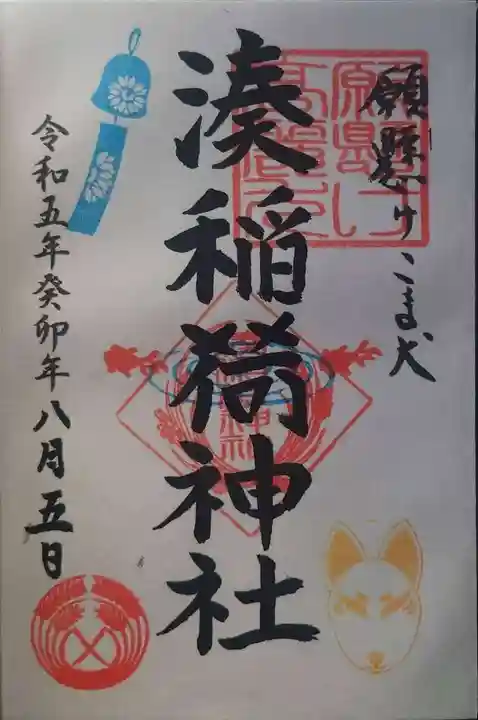 願懸けこま犬
湊稲荷神社
令和五年癸卯年八月五日